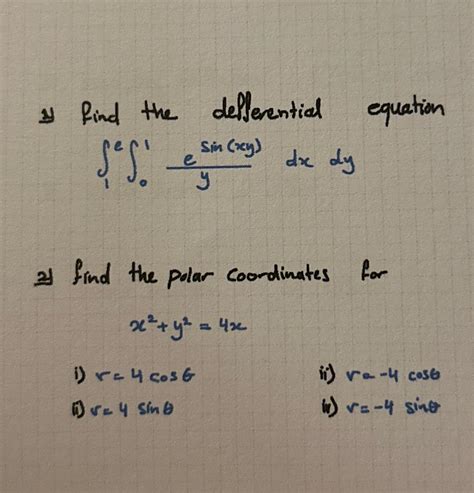 1) find the defferential equation
∫₁ᵉ ∫₀¹ e^sin(xy) / y dx dy
2) find the polar coordinates for
x² + y² = 4x
i) r = 4 cosθ ii) r = -4 cosθ
ii) r = 4 sinθ iv) r = -4 sinθ